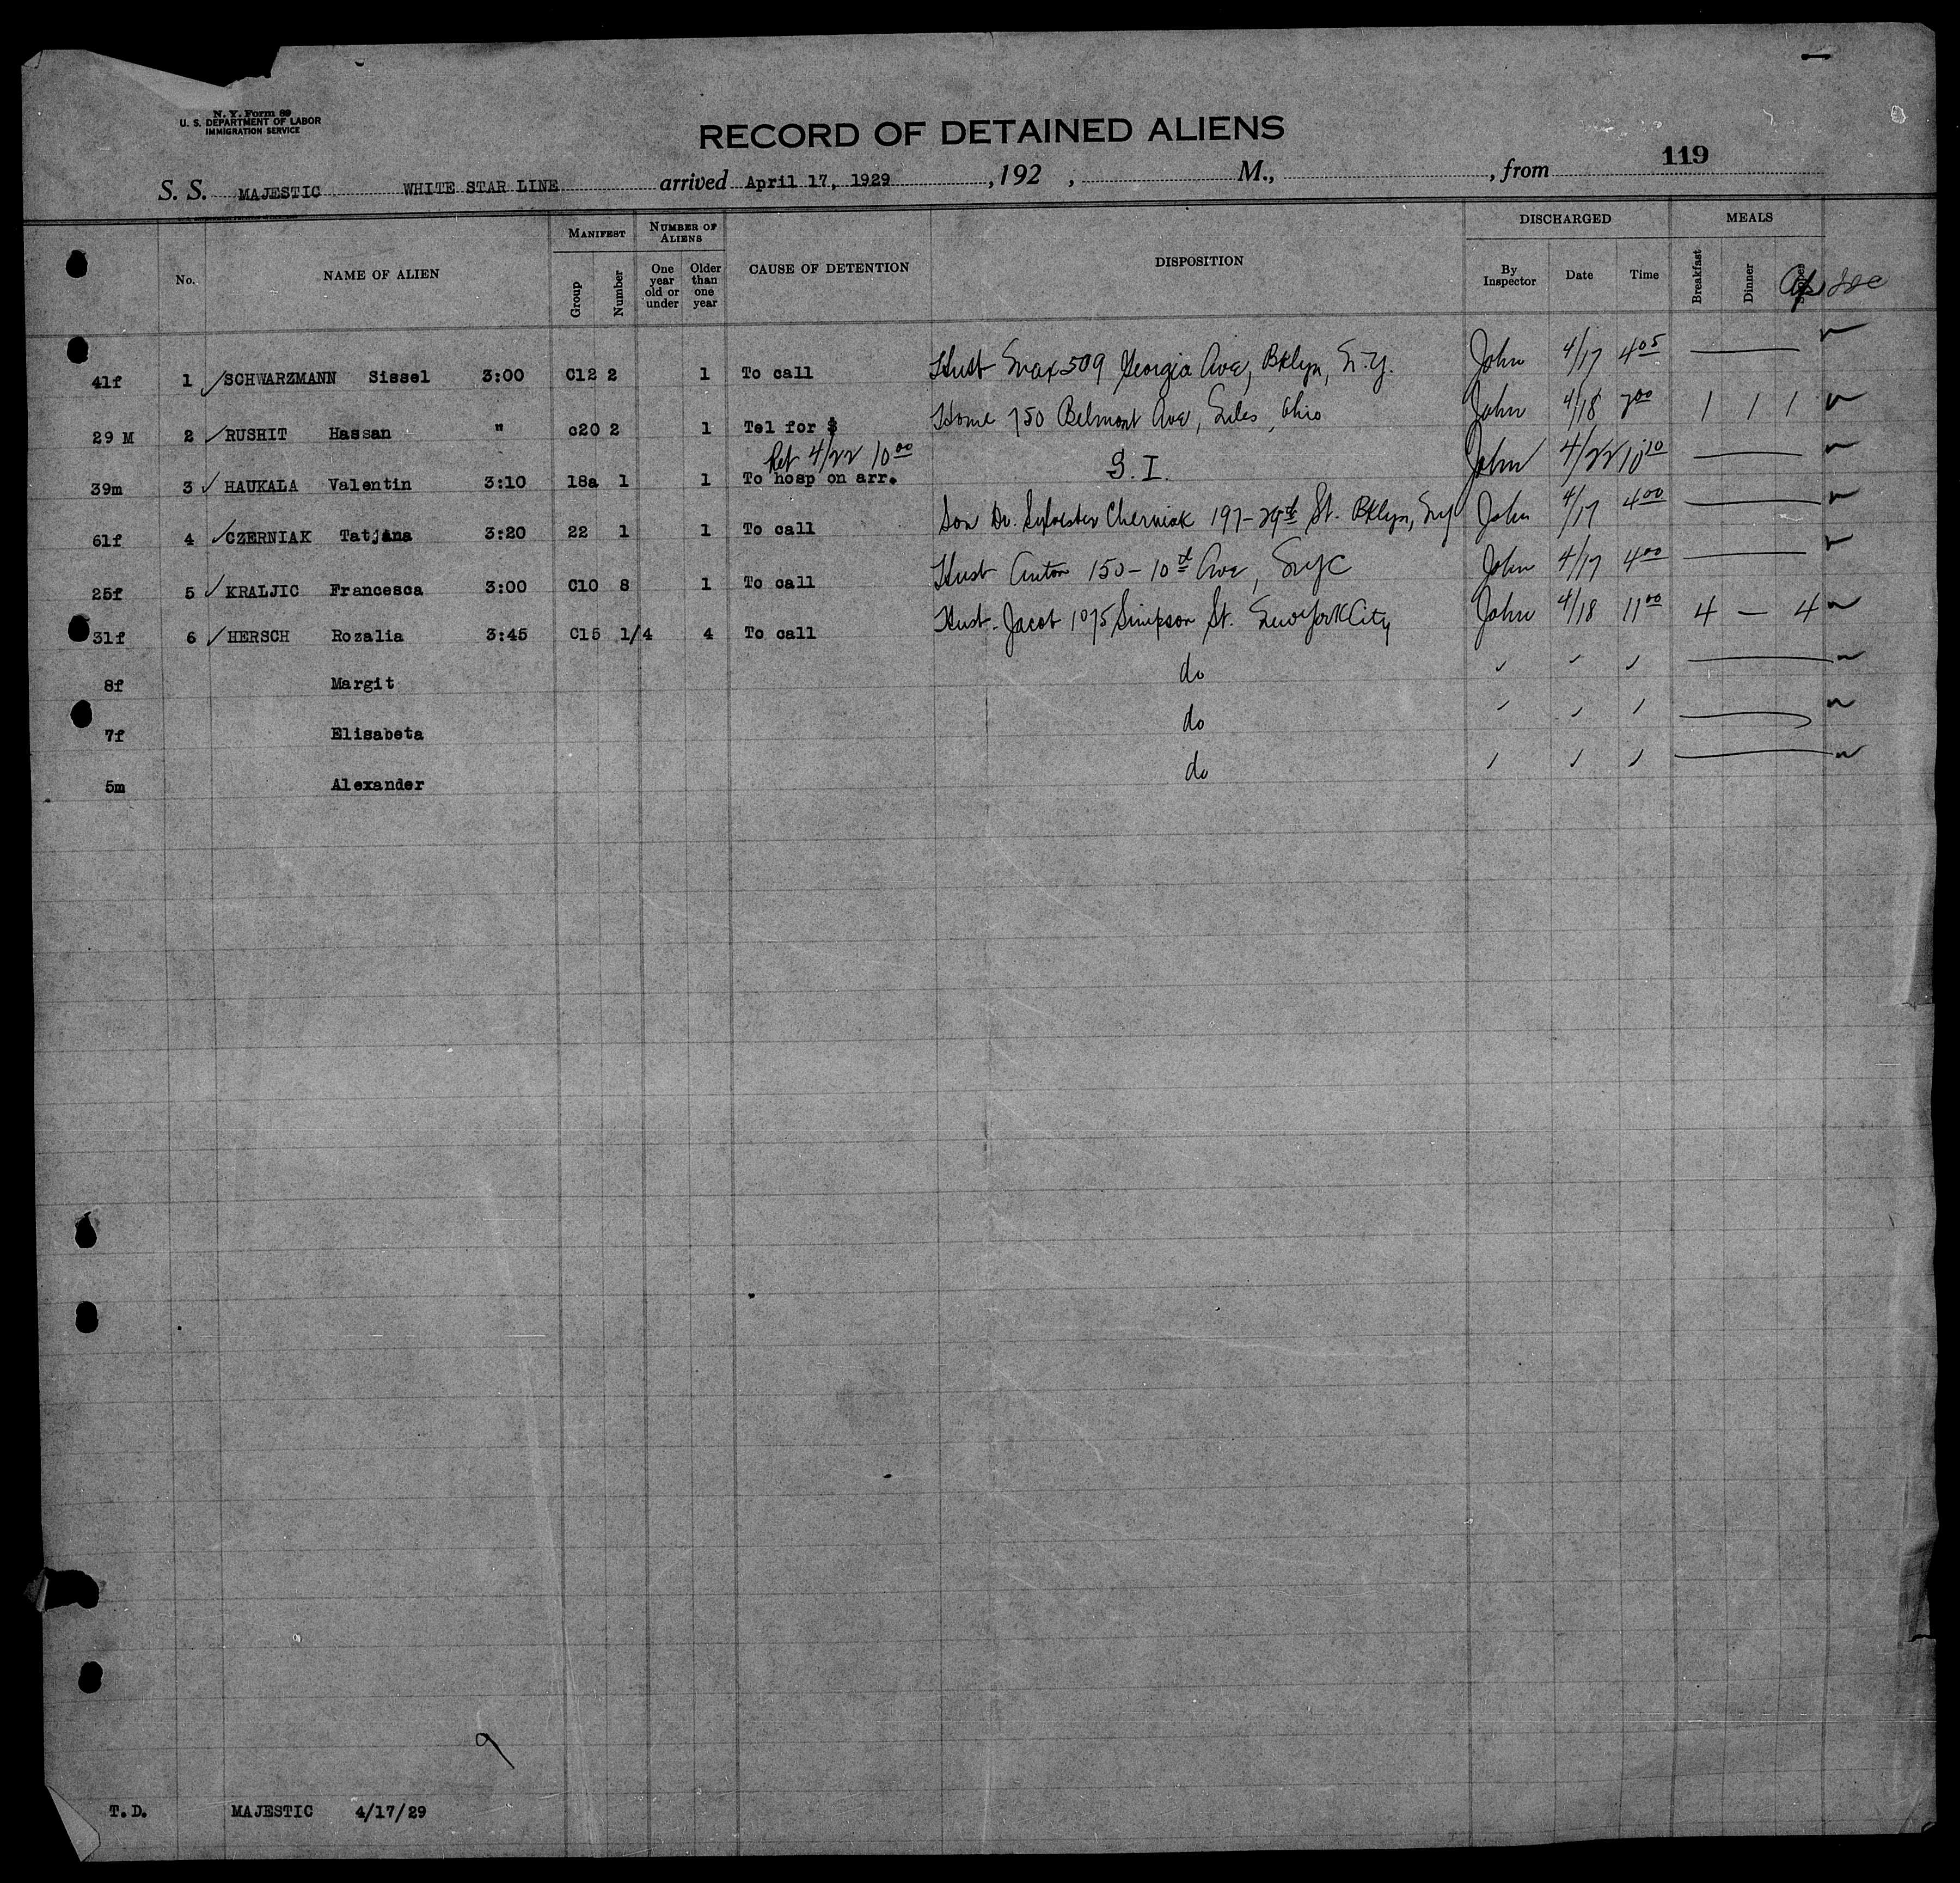 N. Y. Form 89
U. S. DEPARTMENT OF LABOR
IMMIGRATION SERVICE
RECORD OF DETAINED ALIENS
119
S. S. MAJESTIC WHITE STAR LINE arrived April 17, 1929, 192 , M., , from
No. NAME OF ALIEN MANIFEST Group Number NUMBER OF ALIENS One year old or under Older than one year CAUSE OF DETENTION DISPOSITION DISCHARGED By Inspector Date Time MEALS Breakfast Dinner Supper
41f 1 ✓ SCHWARZMANN Sissel 3:00 C12 2 1 To call Hust Max 509 Georgia Ave, Bklyn, N.Y. John 4/17 4 05
29 M 2 ✓ RUSHIT Hassan " c20 2 1 Tel for $ Home 750 Belmont Ave, Niles, Ohio John 4/18 7 00 1 1 1
Ret 4/22 10 00
39m 3 ✓ HAUKALA Valentin 3:10 18a 1 1 To hosp on arr. S. I. John 4/22 10 10
61f 4 ✓ CZERNIAK Tatjana 3:20 22 1 1 To call Son Dr. Sylvester Cherniak 197-29th St. Bklyn, NY John 4/17 4 00
25f 5 ✓ KRALJIC Francesca 3:00 C10 8 1 To call Hust Anton 150-10th Ave, NYC John 4/17 4 00
31f 6 ✓ HERSCH Rozalia 3:45 C15 1/4 4 To call Hust. Jacob 1075 Simpson St. New York City John 4/18 11 00 4 — 4
8f Margit do
7f Elisabeta do
5m Alexander do
9
T.D. MAJESTIC 4/17/29